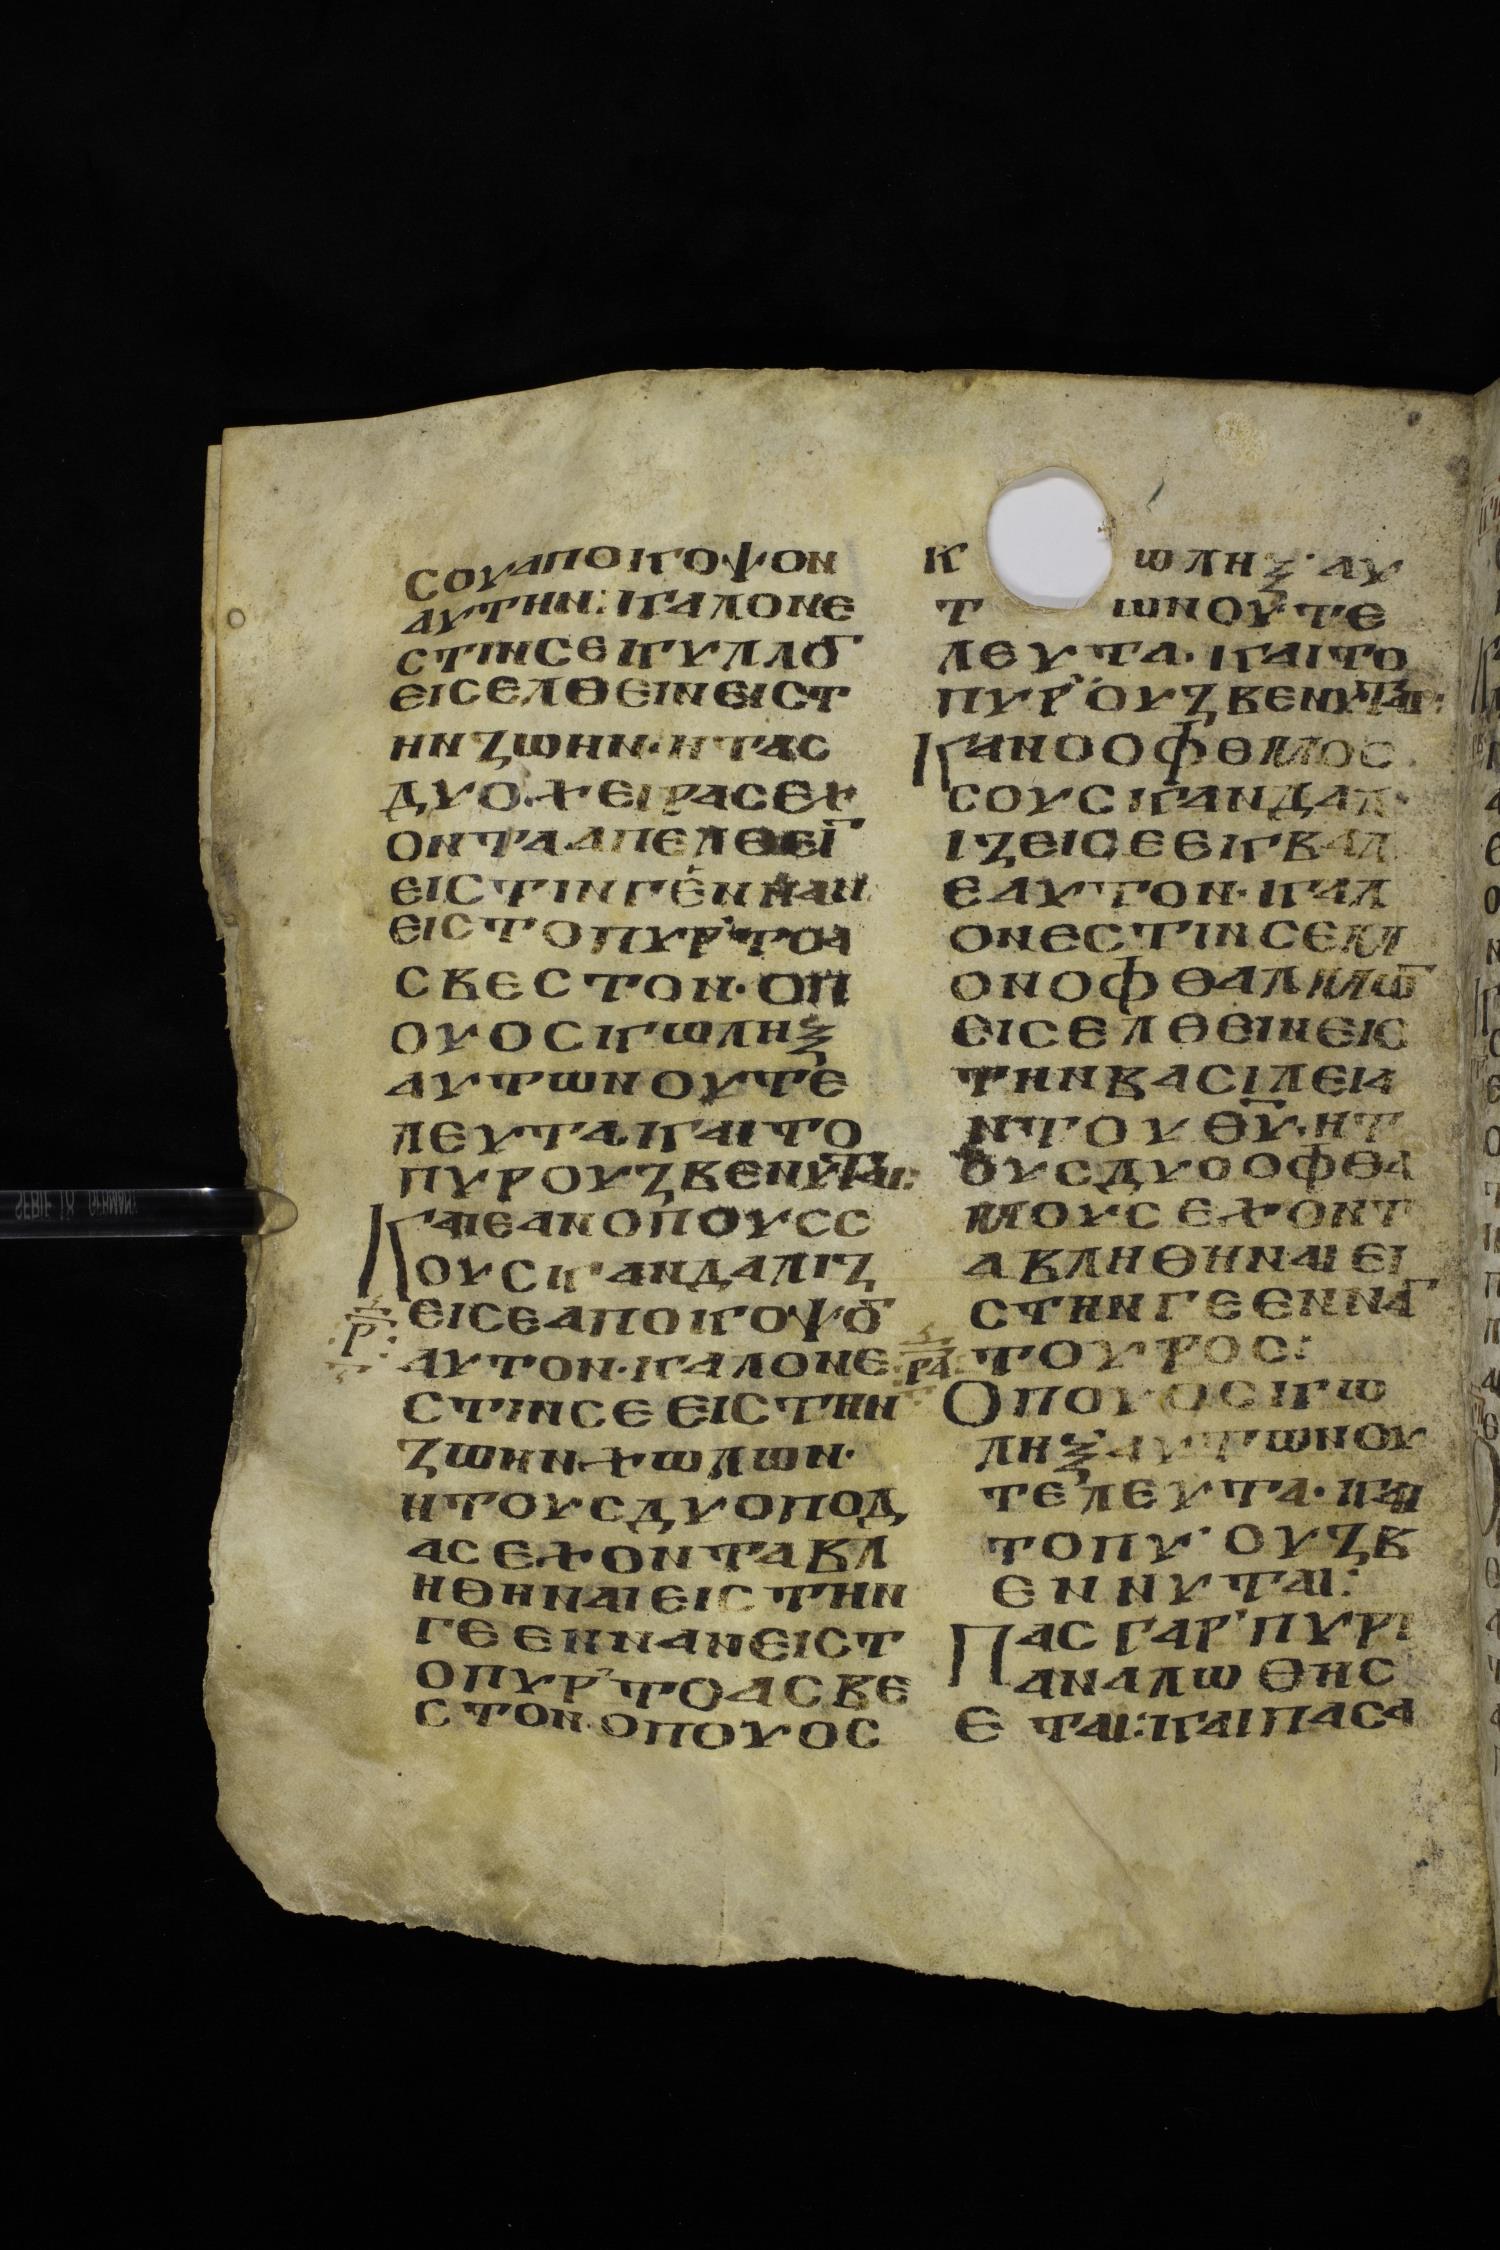 ϹΟΥΑΠΟΚΟΨΟΝ
ΑΥΤΗΝ: ΚΑΛΟΝΕ
ϹΤΙΝϹΕΚΥΛΛΟ̅
ΕΙϹΕΛΘΕΙΝΕΙϹΤ
ΗΝΖΩΗΝ·ΗΤΑϹ
ΔΥΟ·ΧΕΙΡΑϹΕΧ
ΟΝΤΑ·ΑΠΕΛΘΕΙ̅
ΕΙϹΤΙΝΓΕΝΝΑΝ
ΕΙϹΤΟΠΥΡ'ΤΟΑ
ϹΒΕϹΤΟΝ·ΟΠ
ΟΥΟϹΚΩΛΗΞ
ΑΥΤΩΝΟΥΤΕ
ΛΕΥΤΑ·ΚΑΙΤΟ
ΠΥΡΟΥΖΒΕΝΥΤΑΙ:
ΚΑΙΕΑΝΟΠΟΥϹϹ
ΟΥϹΚΑΝΔΑΛΙΖ
ΕΙϹΕΑΠΟΚΟΨΟ̅
ΑΥΤΟΝ·ΚΑΛΟΝΕ
ϹΤΙΝϹΕΕΙϹΤΗΝ
ΖΩΗΝΧΩΛΩΝ·
ΗΤΟΥϹΔΥΟΠΟΔ
ΑϹΕΧΟΝΤΑΒΛ
ΗΘΗΝΑΙΕΙϹΤΗΝ
ΓΕΕΝΝΑΝΕΙϹΤ
ΟΠΥΡ'ΤΟΑϹΒΕ
ϹΤΟΝ·ΟΠΟΥΟϹ
Ρ
Κ ΩΛΗΞ'ΑΥ
Τ ΩΝΟΥ'ΤΕ
ΛΕΥΤΑ·ΚΑΙΤΟ
ΠΥΡ'ΟΥΖΒΕΝΥΤΑΙ:
ΚΑΝΟΟΦΘΛΜΟϹ
ϹΟΥϹΚΑΝΔΑΛ
ΙΖΕΙϹΕΕΚΒΑΛ
ΕΑΥΤΟΝ·ΚΑΛ
ΟΝΕϹΤΙΝϹΕΜ
ΟΝΟΦΘΑΛΜΩ̅
ΕΙϹΕΛΘΕΙΝΕΙϹ
ΤΗΝΒΑϹΙΛΕΙΑ
ΝΤΟΥΘ̅Υ̅·ΗΤ
ΟΥϹΔΥΟΟΦΘΑ
ΜΟΥϹΕΧΟΝΤ
ΑΒΛΗΘΗΝΑΙΕΙ
ϹΤΗΝΓΕΕΝΝΑ̅
ΤΟΥΡΟϹ:
ΟΠΟΥΟϹΚΩ
ΛΗΞΑΥΤΩΝΟΥ
ΤΕ'ΛΕΥΤΑ·ΚΑΙ
ΤΟΠΥ'ΟΥΖΒ
ΕΝΝΥΤΑΙ:
ΠΑϹΓΑΡ'ΠΥΡΙ
ΑΝΑΛΩΘΗϹ
ΕΤΑΙ:ΚΑΙΠΑϹΑ
ΡΑ